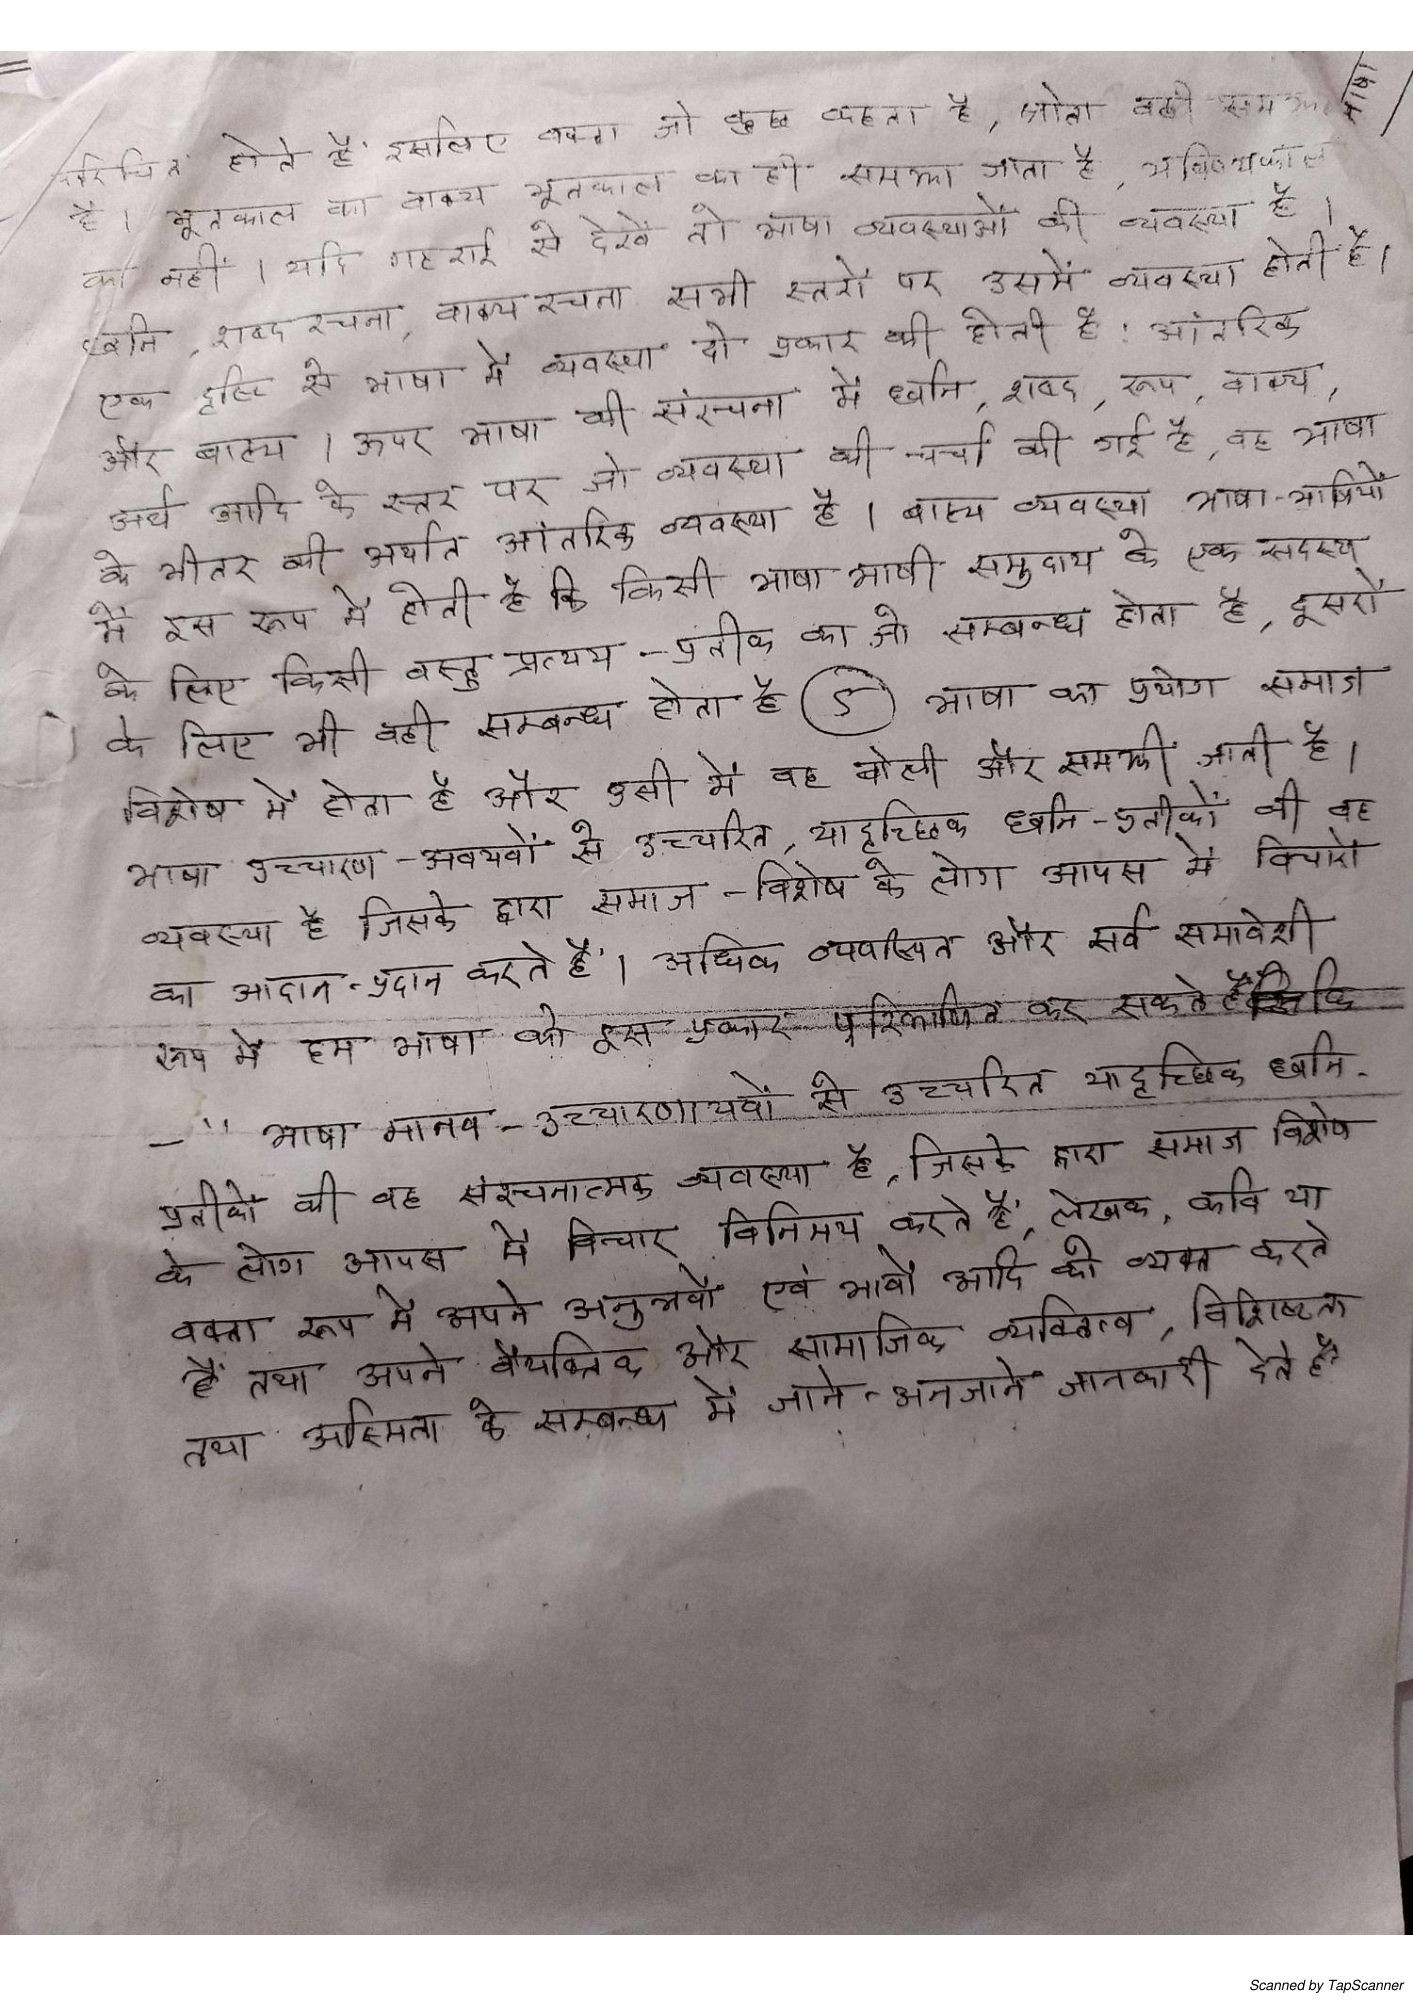 परिचित होते हैं इसलिए वक्ता जो कुछ कहता है, श्रोता वही समझता
है। भूतकाल का वाक्य भूतकाल का ही समझा जाता है, भविष्यकाल
का नहीं। यदि गहराई से देखें तो भाषा व्यवस्थाओं की व्यवस्था है।
ध्वनि, शब्द रचना, वाक्य रचना सभी स्तरों पर उसमें व्यवस्था होती है।
एक दृष्टि से भाषा में व्यवस्था दो प्रकार की होती है: आंतरिक
और बाह्य। ऊपर भाषा की संरचना में ध्वनि, शब्द, रूप, वाक्य,
अर्थ आदि के स्तर पर जो व्यवस्था की चर्चा की गई है, वह भाषा
के भीतर की अर्थात आंतरिक व्यवस्था है। बाह्य व्यवस्था भाषा-भाषियों
में इस रूप में होती है कि किसी भाषा भाषी समुदाय के एक सदस्य
के लिए किसी वस्तु प्रत्यय-प्रतीक का जो सम्बन्ध होता है, दूसरों
के लिए भी वही सम्बन्ध होता है (5) भाषा का प्रयोग समाज
विशेष में होता है और उसी में वह बोली और समझी जाती है।
भाषा उच्चारण-अवयवों से उच्चरित, यादृच्छिक ध्वनि-प्रतीकों की वह
व्यवस्था है जिसके द्वारा समाज-विशेष के लोग आपस में विचारों
का आदान-प्रदान करते हैं। अधिक व्यवस्थित और सर्व समावेशी
रूप में हम भाषा को इस प्रकार परिभाषित कर सकते हैं कि
-" भाषा मानव-उच्चारणायवों से उच्चरित यादृच्छिक ध्वनि-
प्रतीकों की वह संरचनात्मक व्यवस्था है, जिसके द्वारा समाज विशेष
के लोग आपस में विचार विनिमय करते हैं, लेखक, कवि या
वक्ता रूप में अपने अनुभवों एवं भावों आदि को व्यक्त करते
हैं तथा अपने वैयक्तिक और सामाजिक व्यक्तित्व, विशिष्टता
तथा अस्मिता के सम्बन्ध में जाने-अनजाने जानकारी देते हैं
Scanned by TapScanner